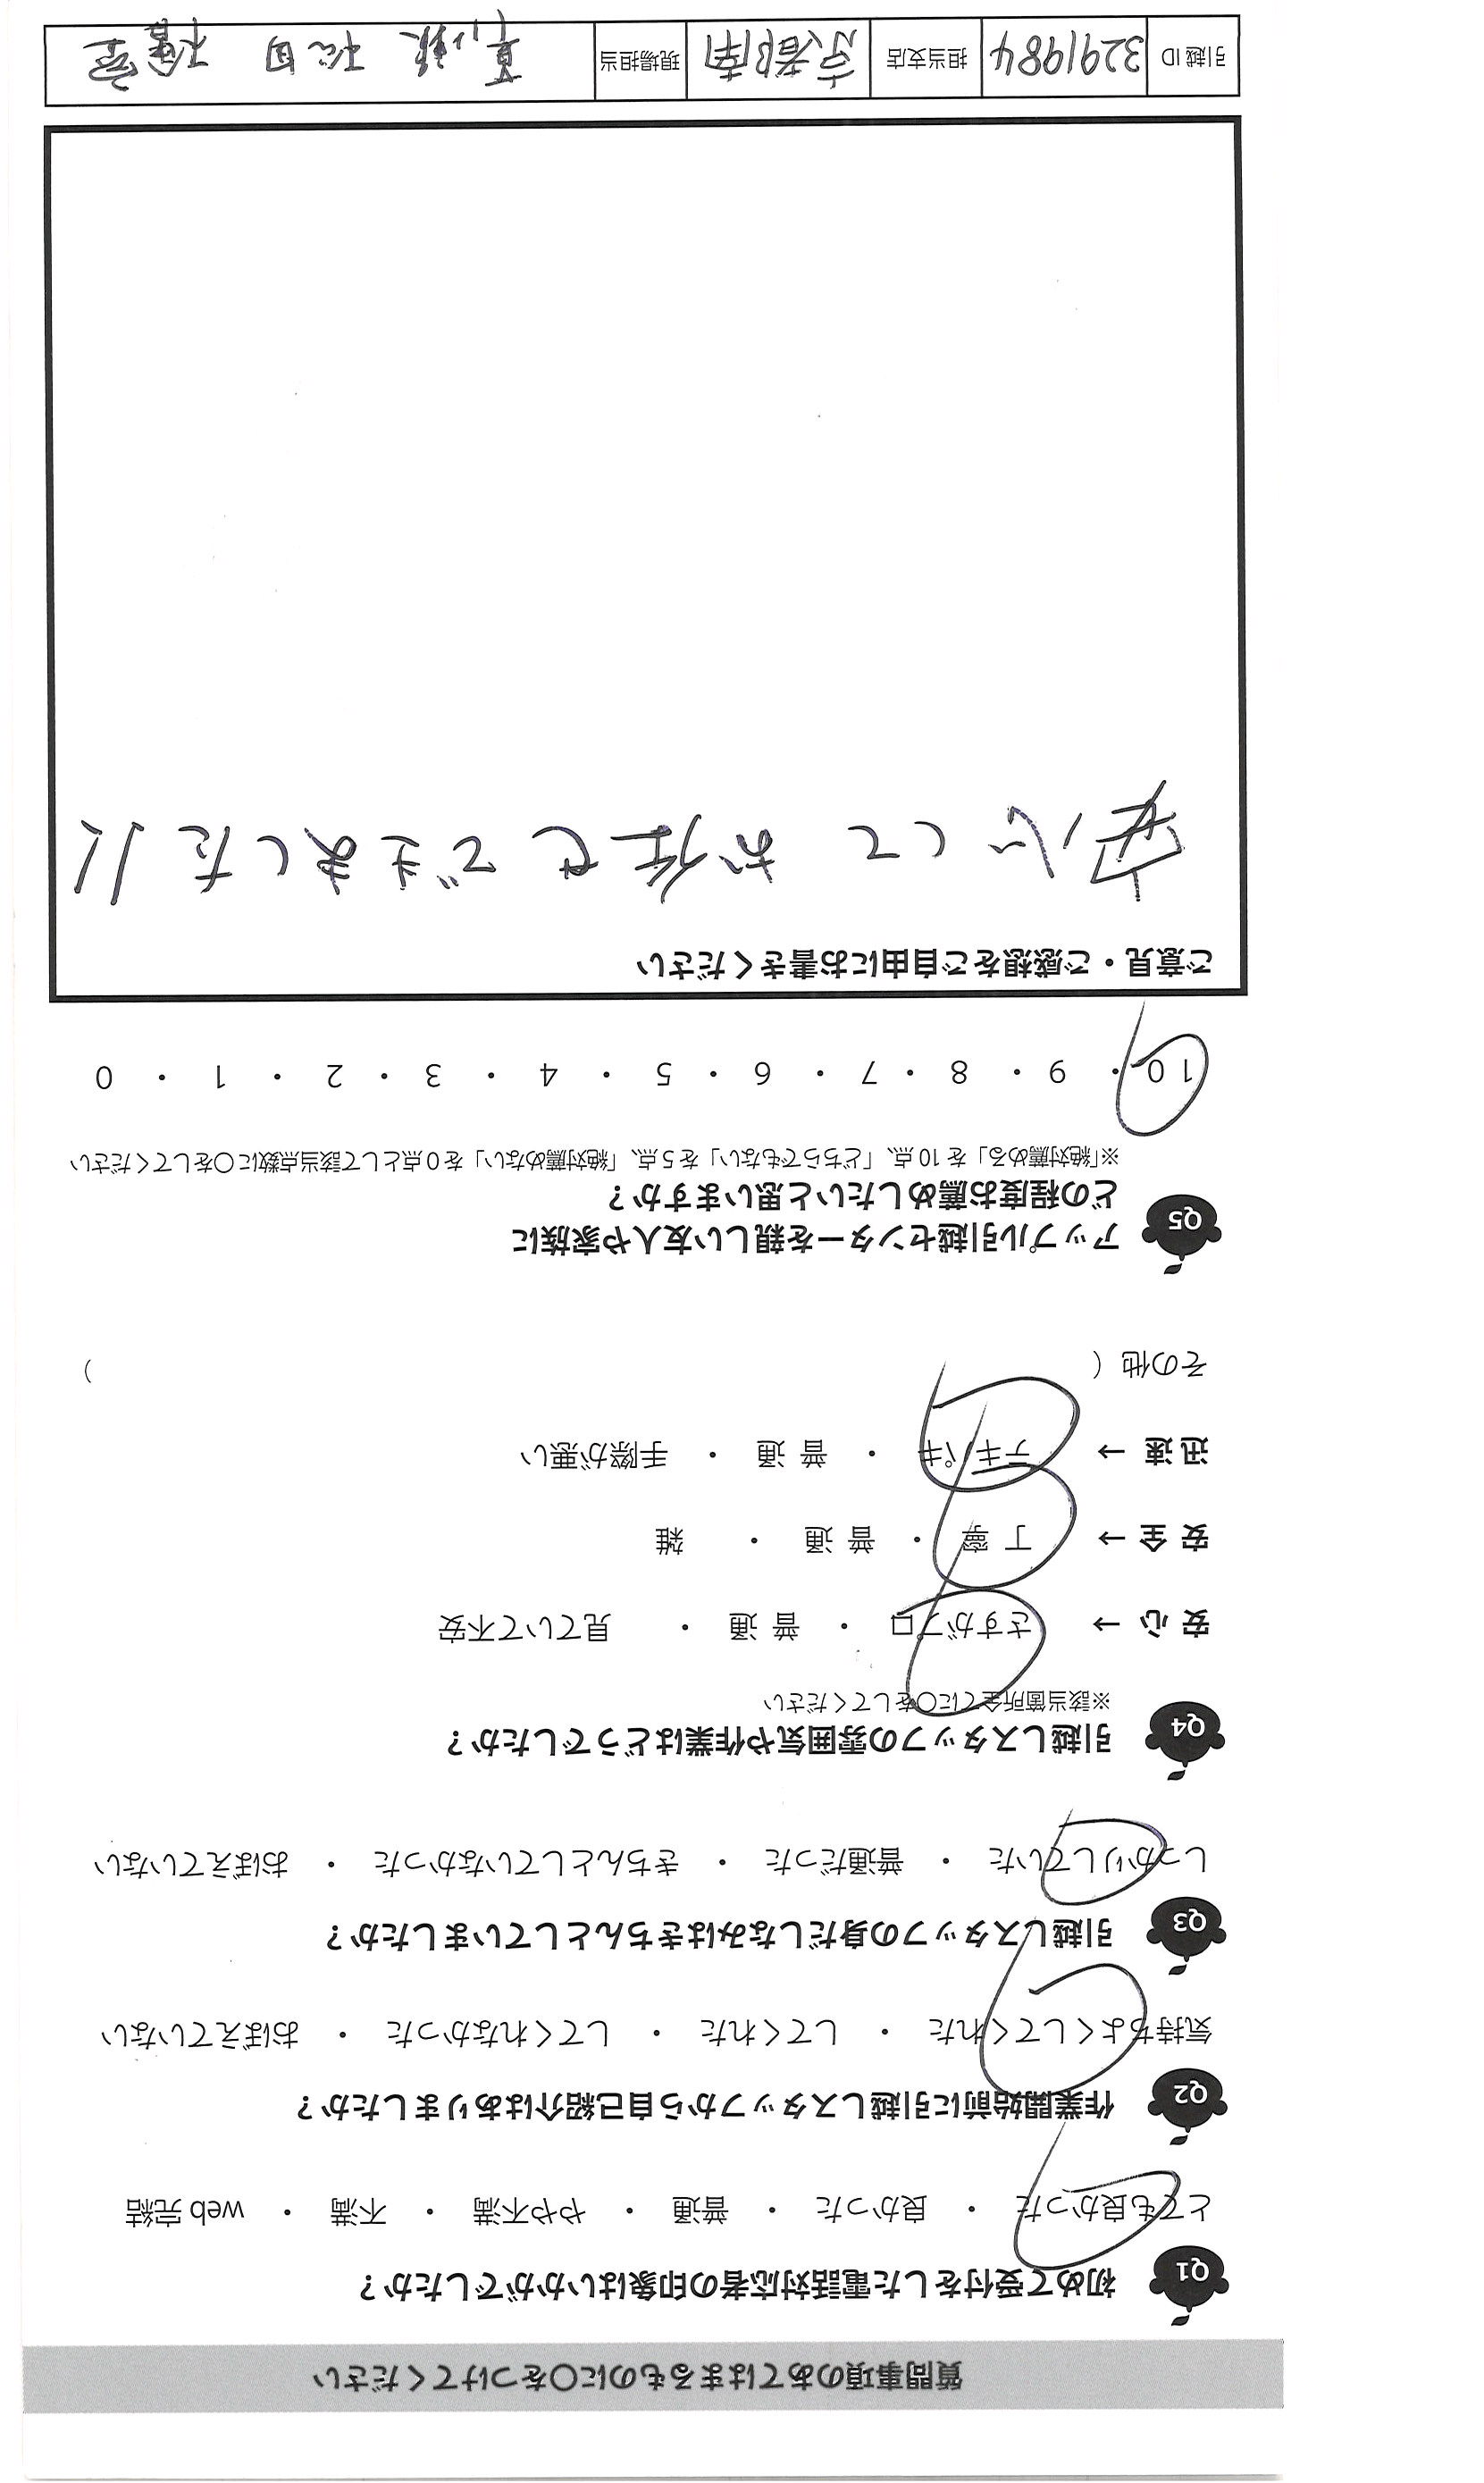 質問事項のあてはまるものに○をつけてください
Q1 初めて受付をした電話対応者の印象はいかがでしたか？
とても良かった ・ 良かった ・ 普通 ・ やや不満 ・ 不満 ・ web 完結
Q2 作業開始前に引越しスタッフから自己紹介はありましたか？
気持ちよくしてくれた ・ してくれた ・ してくれなかった ・ おぼえていない
Q3 引越しスタッフの身だしなみはきちんとしていましたか？
しっかりしていた ・ 普通だった ・ きちんとしていなかった ・ おぼえていない
Q4 引越しスタッフの雰囲気や作業はどうでしたか？
※該当箇所全てに○をしてください
安 心 → さすがプロ ・ 普 通 ・ 見ていて不安
安 全 → 丁 寧 ・ 普 通 ・ 雑
迅 速 → テキパキ ・ 普 通 ・ 手際が悪い
その他（ ）
Q5 アップル引越センターを親しい友人や家族に
どの程度お薦めしたいと思いますか？
※「絶対薦める」を 10 点、「どちらでもない」を 5 点、「絶対薦めない」を 0 点として該当点数に○をしてください
10 ・ 9 ・ 8 ・ 7 ・ 6 ・ 5 ・ 4 ・ 3 ・ 2 ・ 1 ・ 0
ご意見・ご感想をご自由にお書きください
安心して お任せできました!!
引越 ID 3291984 担当支店 京都南 現場担当 松田